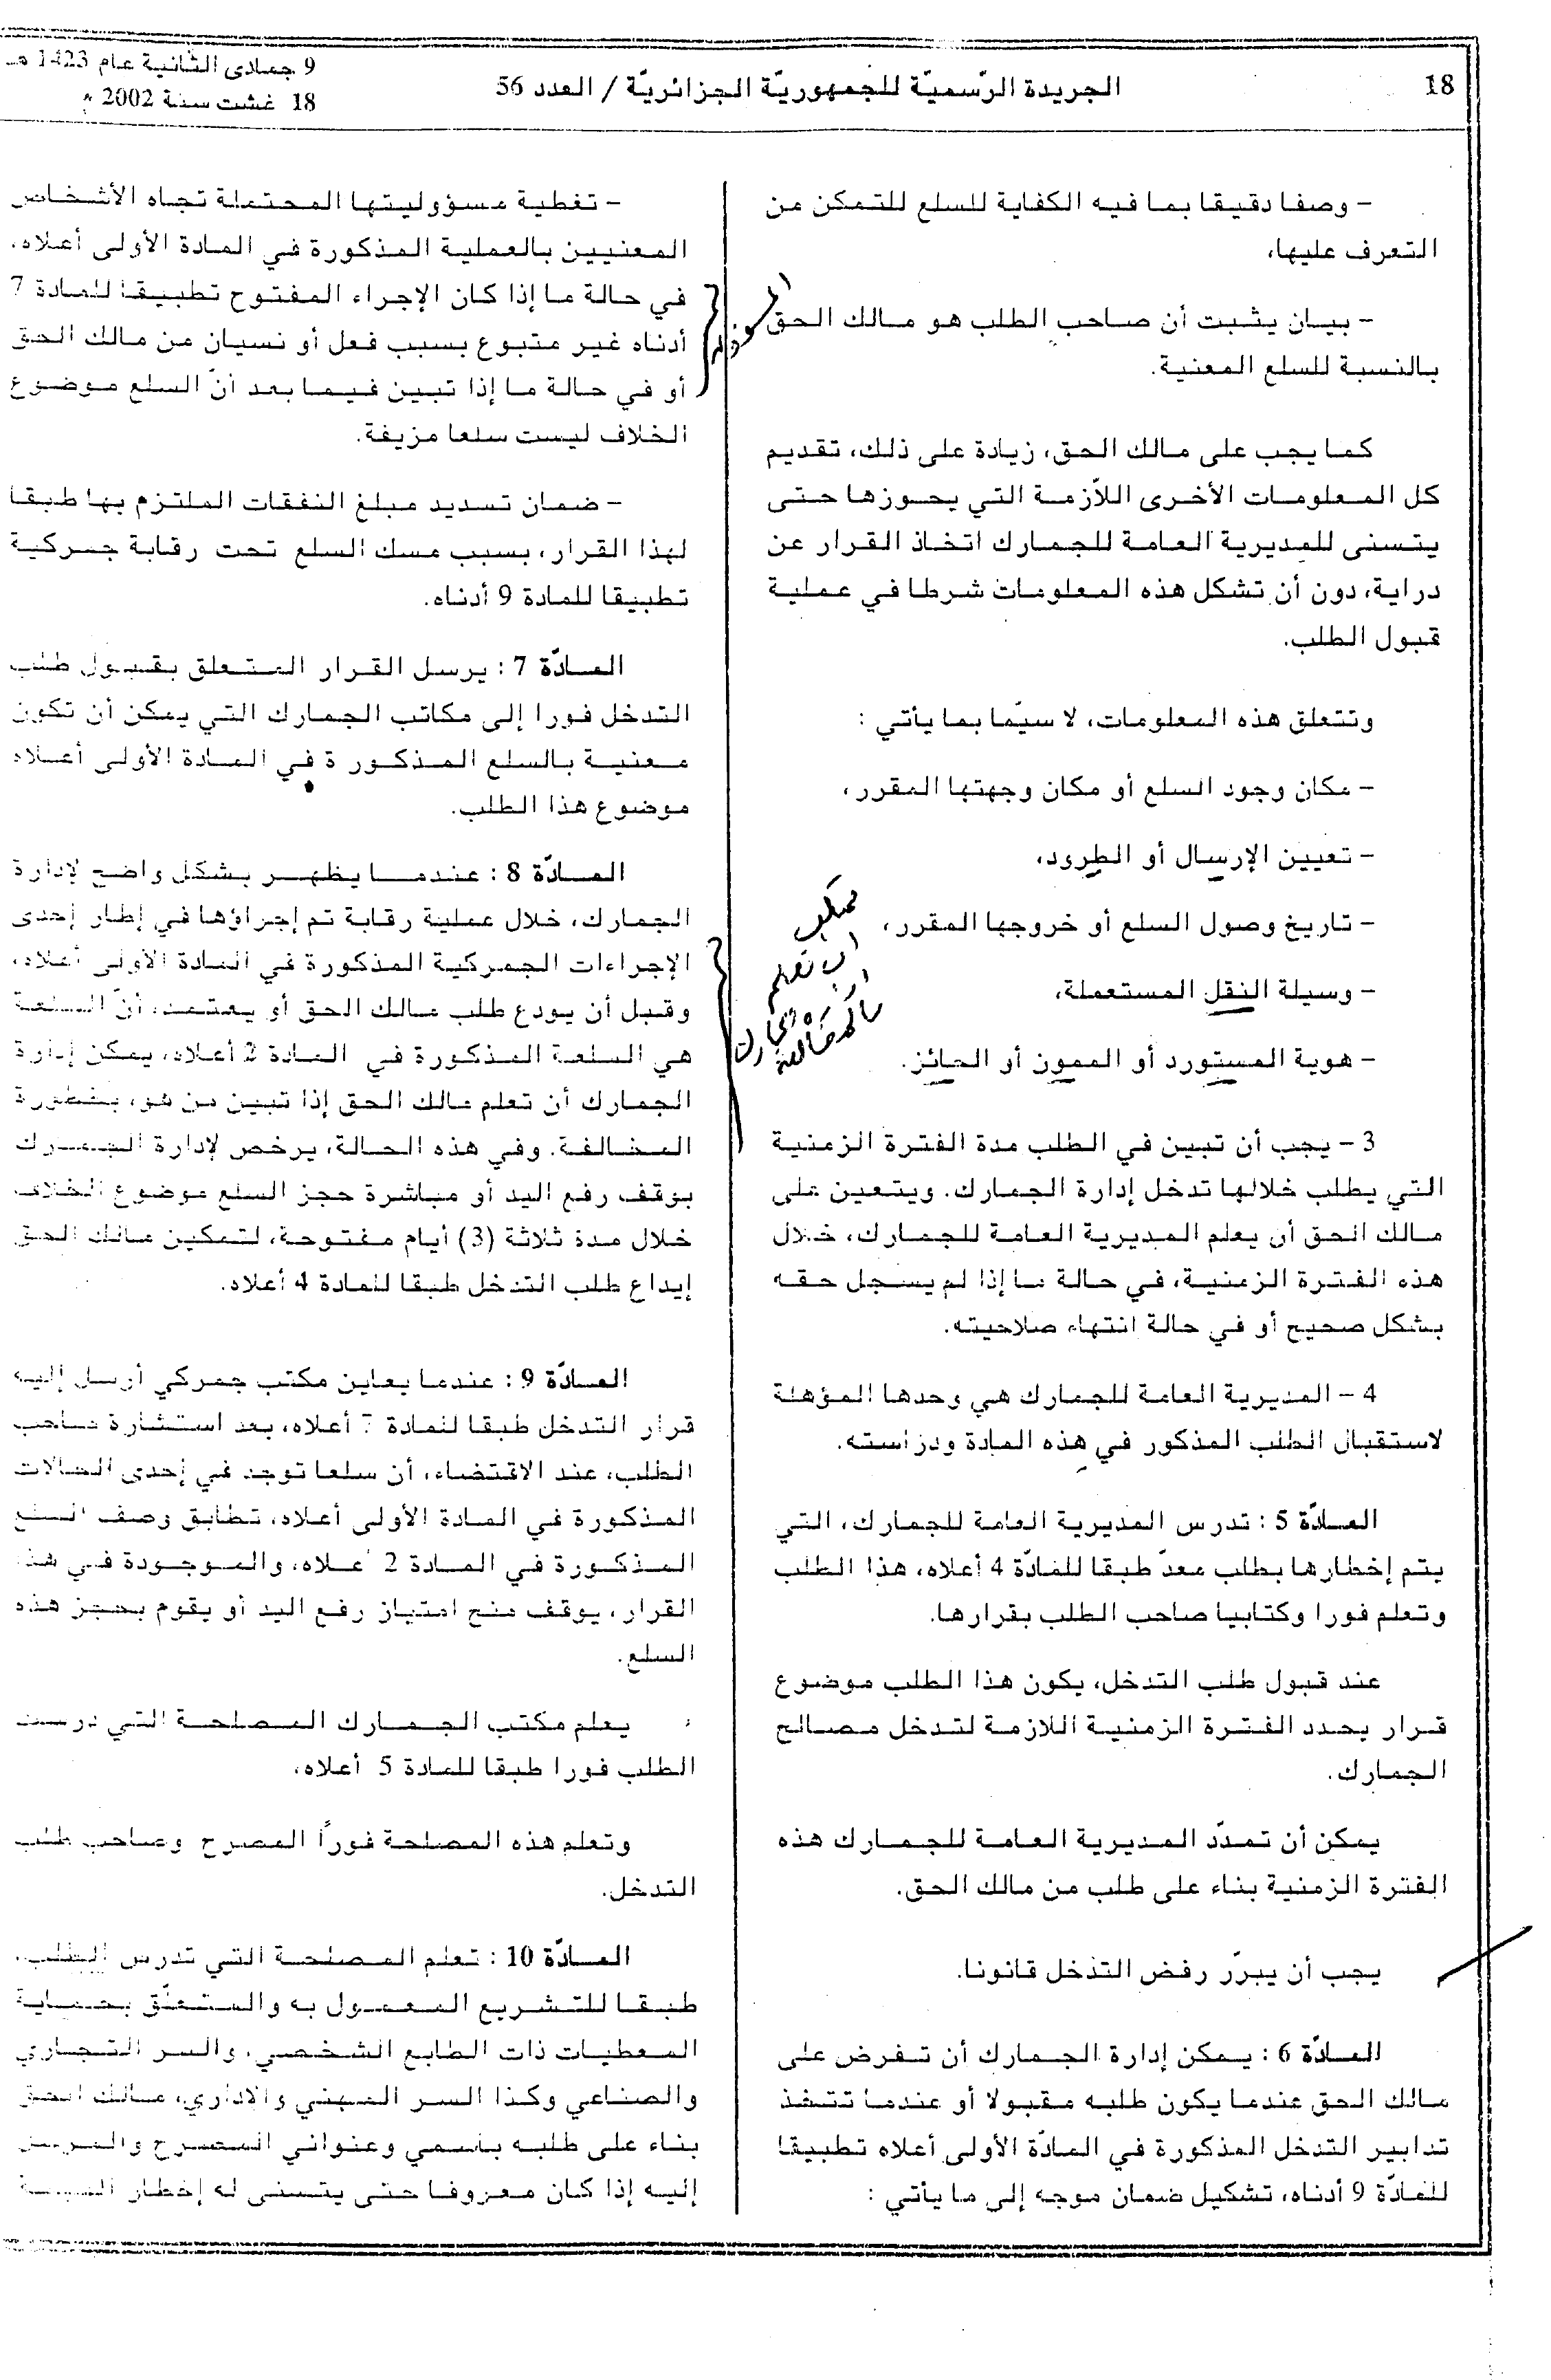 18
الجريدة الرّسميّة للجمهوريّة الجزائريّة / العدد 56
9 جمادى الثانية عام 1423 هـ
18 غشت سنة 2002 م
– وصفا دقيقا بما فيه الكفاية للسلع للتمكن من
التعرف عليها،
– بيان يثبت أن صاحب الطلب هو مالك الحق
بالنسبة للسلع المعنية.
كما يجب على مالك الحق، زيادة على ذلك، تقديم
كل المعلومات الأخرى اللاّزمة التي يحوزها حتى
يتسنى للمديرية العامة للجمارك اتخاذ القرار عن
دراية، دون أن تشكل هذه المعلومات شرطا في عملية
قبول الطلب.
وتتعلق هذه المعلومات، لا سيّما بما يأتي :
– مكان وجود السلع أو مكان وجهتها المقرر،
– تعيين الإرسال أو الطرود،
– تاريخ وصول السلع أو خروجها المقرر،
– وسيلة النقل المستعملة،
– هوية المستورد أو الممون أو الحائز.
3 – يجب أن تبين في الطلب مدة الفترة الزمنية
التي يطلب خلالها تدخل إدارة الجمارك. ويتعين على
مالك الحق أن يعلم المديرية العامة للجمارك، خلال
هذه الفترة الزمنية، في حالة ما إذا لم يسجل حقه
بشكل صحيح أو في حالة انتهاء صلاحيته.
4 – المديرية العامة للجمارك هي وحدها المؤهلة
لاستقبال الطلب المذكور في هذه المادة ودراسته.
المادّة 5 : تدرس المديرية العامة للجمارك، التي
يتم إخطارها بطلب معدّ طبقا للمادّة 4 أعلاه، هذا الطلب
وتعلم فورا وكتابيا صاحب الطلب بقرارها.
عند قبول طلب التدخل، يكون هذا الطلب موضوع
قرار يحدد الفترة الزمنية اللازمة لتدخل مصالح
الجمارك.
يمكن أن تمدّد المديرية العامة للجمارك هذه
الفترة الزمنية بناء على طلب من مالك الحق.
يجب أن يبرّر رفض التدخل قانونا.
المادّة 6 : يمكن إدارة الجمارك أن تفرض على
مالك الحق عندما يكون طلبه مقبولا أو عندما تتخذ
تدابير التدخل المذكورة في المادّة الأولى أعلاه تطبيقا
للمادّة 9 أدناه، تشكيل ضمان موجه إلى ما يأتي :
– تغطية مسؤوليتها المحتملة تجاه الأشخاص
المعنيين بالعملية المذكورة في المادة الأولى أعلاه،
في حالة ما إذا كان الإجراء المفتوح تطبيقا للمادة 7
أدناه غير متبوع بسبب فعل أو نسيان من مالك الحق
أو في حالة ما إذا تبين فيما بعد أنّ السلع موضوع
الخلاف ليست سلعا مزيفة.
– ضمان تسديد مبلغ النفقات الملتزم بها طبقا
لهذا القرار، بسبب مسك السلع تحت رقابة جمركية
تطبيقا للمادة 9 أدناه.
المادّة 7 : يرسل القرار المتعلق بقبول طلب
التدخل فورا إلى مكاتب الجمارك التي يمكن أن تكون
معنية بالسلع المذكورة في المادة الأولى أعلاه
موضوع هذا الطلب.
المادّة 8 : عندما يظهر بشكل واضح لإدارة
الجمارك، خلال عملية رقابة تم إجراؤها في إطار إحدى
الإجراءات الجمركية المذكورة في المادة الأولى أعلاه،
وقبل أن يودع طلب مالك الحق أو يعتمد، أنّ السلعة
هي السلعة المذكورة في المادة 2 أعلاه، يمكن إدارة
الجمارك أن تعلم مالك الحق إذا تبين من هو، بخطورة
المخالفة. وفي هذه الحالة، يرخص لإدارة الجمارك
بوقف رفع اليد أو مباشرة حجز السلع موضوع الخلاف
خلال مدة ثلاثة (3) أيام مفتوحة، لتمكين مالك الحق
إيداع طلب التدخل طبقا للمادة 4 أعلاه.
المادّة 9 : عندما يعاين مكتب جمركي أرسل إليه
قرار التدخل طبقا للمادة 7 أعلاه، بعد استشارة صاحب
الطلب، عند الاقتضاء، أن سلعا توجد في إحدى الحالات
المذكورة في المادة الأولى أعلاه، تطابق وصف السلع
المذكورة في المادة 2 أعلاه، والموجودة في هذا
القرار، يوقف منح امتياز رفع اليد أو يقوم بحجز هذه
السلع.
يعلم مكتب الجمارك المصلحة التي درست
الطلب فورا طبقا للمادة 5 أعلاه،
وتعلم هذه المصلحة فوراً المصرح وصاحب طلب
التدخل.
المادّة 10 : تعلم المصلحة التي تدرس الطلب،
طبقا للتشريع المعمول به والمتعلّق بحماية
المعطيات ذات الطابع الشخصي، والسر التجاري
والصناعي وكذا السر المهني والاداري، مالك الحق
بناء على طلبه باسمي وعنواني المصرح والمرسل
إليه إذا كان معروفا حتى يتسنى له إخطار